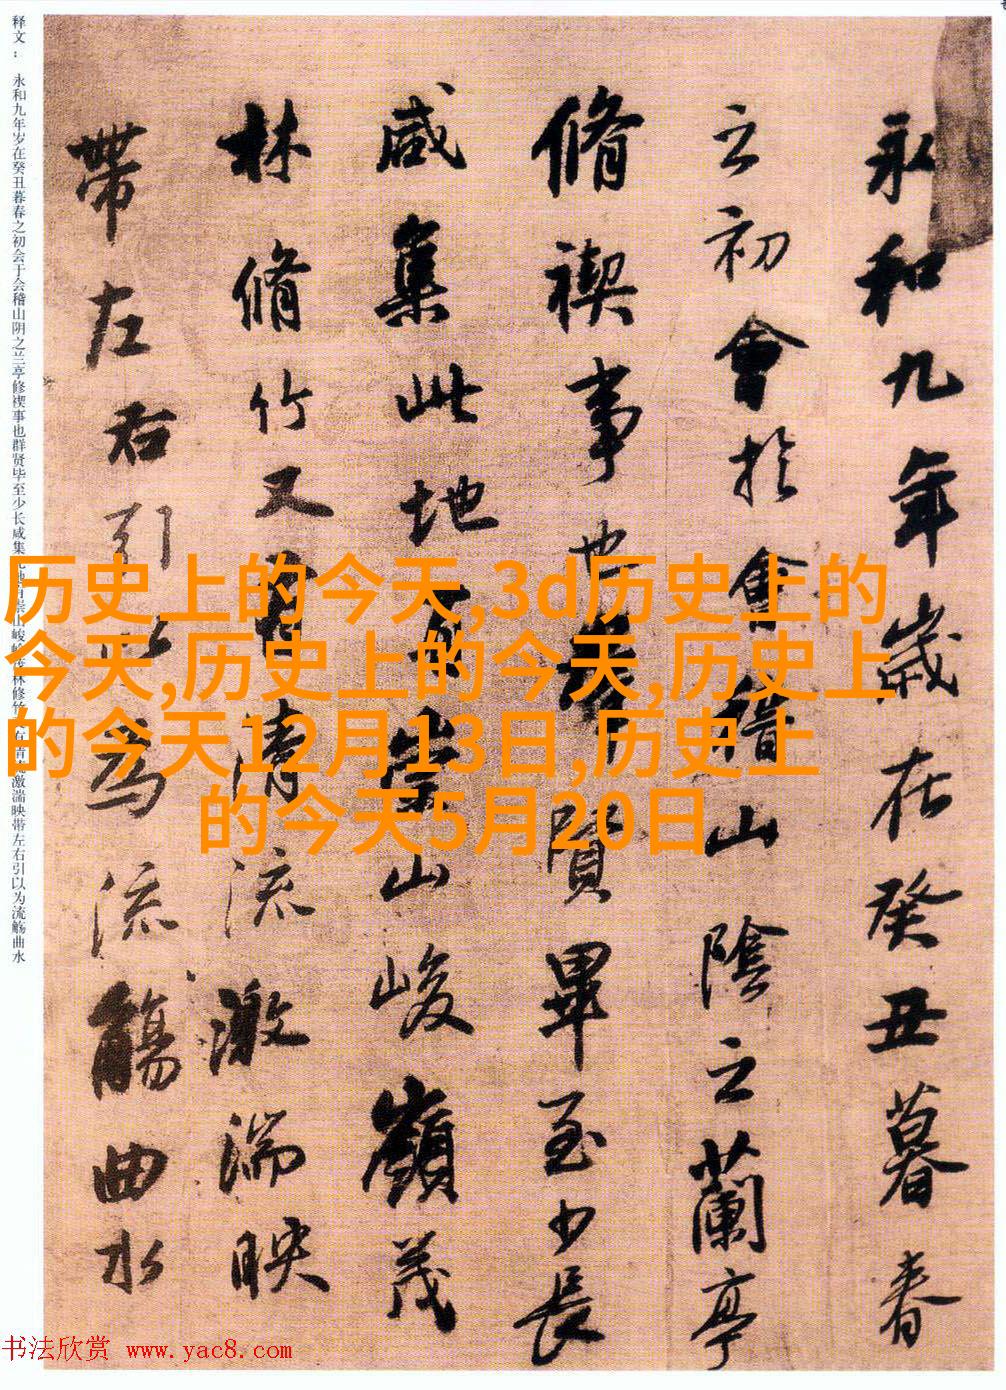 永和九年歲在癸丑暮春
之初會於會稽山陰之蘭亭
脩禊事也羣賢畢至少長
咸集此地有崇山峻嶺茂
林脩竹又有清流激湍映
帶左右引以為流觴曲水
释文：永和九年岁在癸丑暮春之初会于会稽山阴之兰亭修禊事也群贤毕至少长咸集崇山峻林修竹激湍映带左右引以为流觞曲水
历史上的今天,3d历史上的
今天,历史上的今天,历史上
的今天12月13日,历史上
的今天5月20日
书法欣赏 www.yac8.com